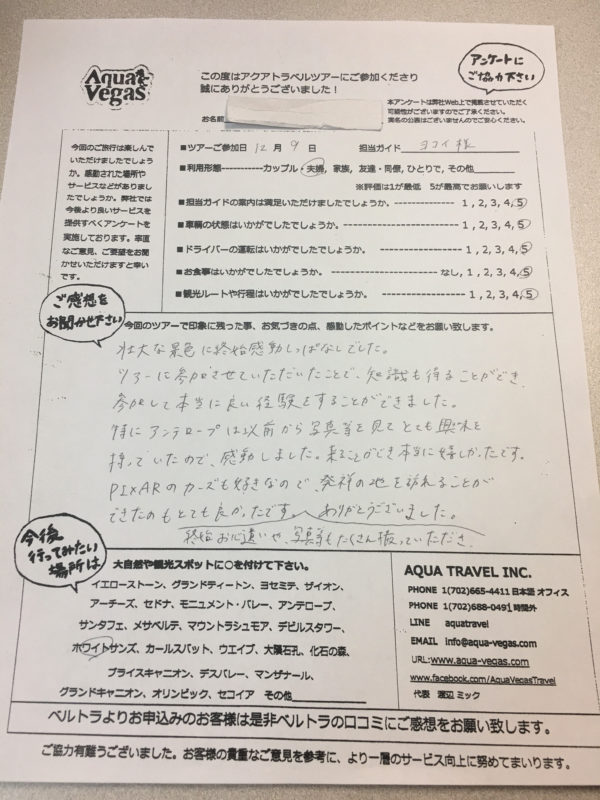 Aqua Vegas
この度はアクアトラベルツアーにご参加くださり
誠にありがとうございました！
アンケートに
ご協力下さい
お名前
本アンケートは弊社Web上で掲載させていただく
可能性がございますのでご了承ください。
実名の公表はございませんのでご安心ください。
今回のご旅行は楽しんで
いただけましたでしょう
か。感動された場所や
サービスなどがありまし
たでしょうか。弊社では
今後より良いサービスを
提供すべくアンケートを
実施しております。率直
なご意見、ご要望をお聞
かせいただけますと幸い
です。
■ツアーご参加日 12 月 9 日 担当ガイド ヨコイ様
■利用形態------------カップル・夫婦, 家族, 友達・同僚, ひとりで, その他
※評価は1が最低 5が最高でお願いします
■担当ガイドの案内は満足いただけましたでしょうか。 ---------- 1 , 2, 3, 4, 5
■車輌の状態はいかがでしたでしょうか。 ---------------------- 1 , 2, 3, 4, 5
■ドライバーの運転はいかがでしたでしょうか。 ---------------- 1 , 2, 3, 4, 5
■お食事はいかがでしたでしょうか。 -------------------- なし, 1, 2, 3, 4, 5
■観光ルートや行程はいかがでしたでしょうか。 ---------------- 1, 2, 3, 4, 5
ご感想を
お聞かせ下さい
今回のツアーで印象に残った事、お気づきの点、感動したポイントなどをお願い致します。
壮大な景色に終始感動しっぱなしでした。
ツアーに参加させていただいたことで、知識も得ることができ、
参加して本当に良い経験をすることができました。
特にアンテロープは以前から写真等を見てとても興味を
持っていたので、感動しました。来ることができ本当に嬉しかったです。
PIXARのカーズも好きなので、発祥の地を訪れることが
できたのもとても良かったです。ありがとうございました。
終始お心遣いや、写真等もたくさん撮っていただき、
今後
行ってみたい
場所は
大自然や観光スポットに○を付けて下さい。
イエローストーン、グランドティートン、ヨセミテ、ザイオン、
アーチーズ、セドナ、モニュメント・バレー、アンテロープ、
サンタフェ、メサベルテ、マウントラシュモア、デビルスタワー、
ホワイトサンズ、カールスバット、ウエイブ、大隕石孔、化石の森、
ブライスキャニオン、デスバレー、マンザナール、
グランドキャニオン、オリンピック、セコイア その他
AQUA TRAVEL INC.
PHONE 1(702)665-4411 日本語 オフィス
PHONE 1(702)688-0491 時間外
LINE aquatravel
EMAIL info@aqua-vegas.com
URL:www.aqua-vegas.com
www.facebook.com/AquaVegasTravel
代表 渡辺 ミック
ベルトラよりお申込みのお客様は是非ベルトラの口コミにご感想をお願い致します。
ご協力有難うございました。お客様の貴重なご意見を参考に、より一層のサービス向上に努めてまいります。